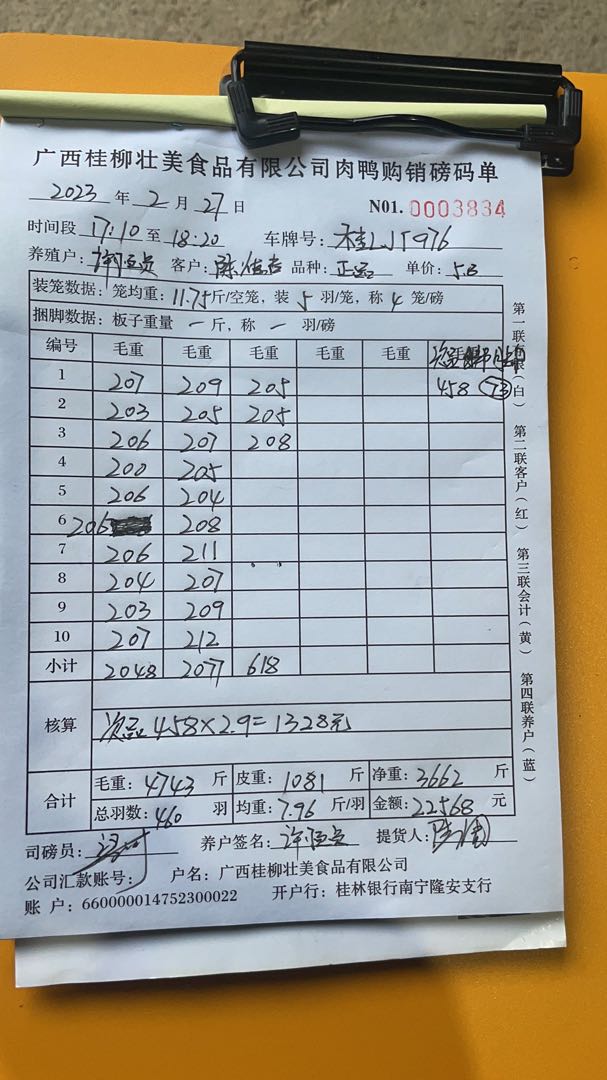 广西桂柳壮美食品有限公司肉鸭购销磅码单
2023 年 2 月 27 日 N01. 0003834
时间段 17:10 至 18:20 车牌号: 桂LJ5976
养殖户: 客户: 品种: 正品 单价: 5.8
装笼数据: 笼均重: 11.75 斤/空笼, 装 5 羽/笼, 称 4 笼/磅
捆脚数据: 板子重量 一 斤, 称 一 羽/磅
编号 毛重 毛重 毛重 毛重 毛重 次品
1 207 209 205 458 (73)
2 203 205 205
3 206 207 208
4 200 205
5 206 204
6 206 208
7 206 211
8 204 207
9 203 209
10 207 212
小计 2048 2077 618
核算 次品 458×2.9=1328元
合计 毛重: 4743 斤 皮重: 1081 斤 净重: 3662 斤
总羽数: 460 羽 均重: 7.96 斤/羽 金额: 22568 元
司磅员: 养户签名: 提货人:
公司汇款账号: 户名: 广西桂柳壮美食品有限公司
账 户: 660000014752300022 开户行: 桂林银行南宁隆安支行
第一联存根(白) 第二联客户(红) 第三联会计(黄) 第四联养户(蓝)